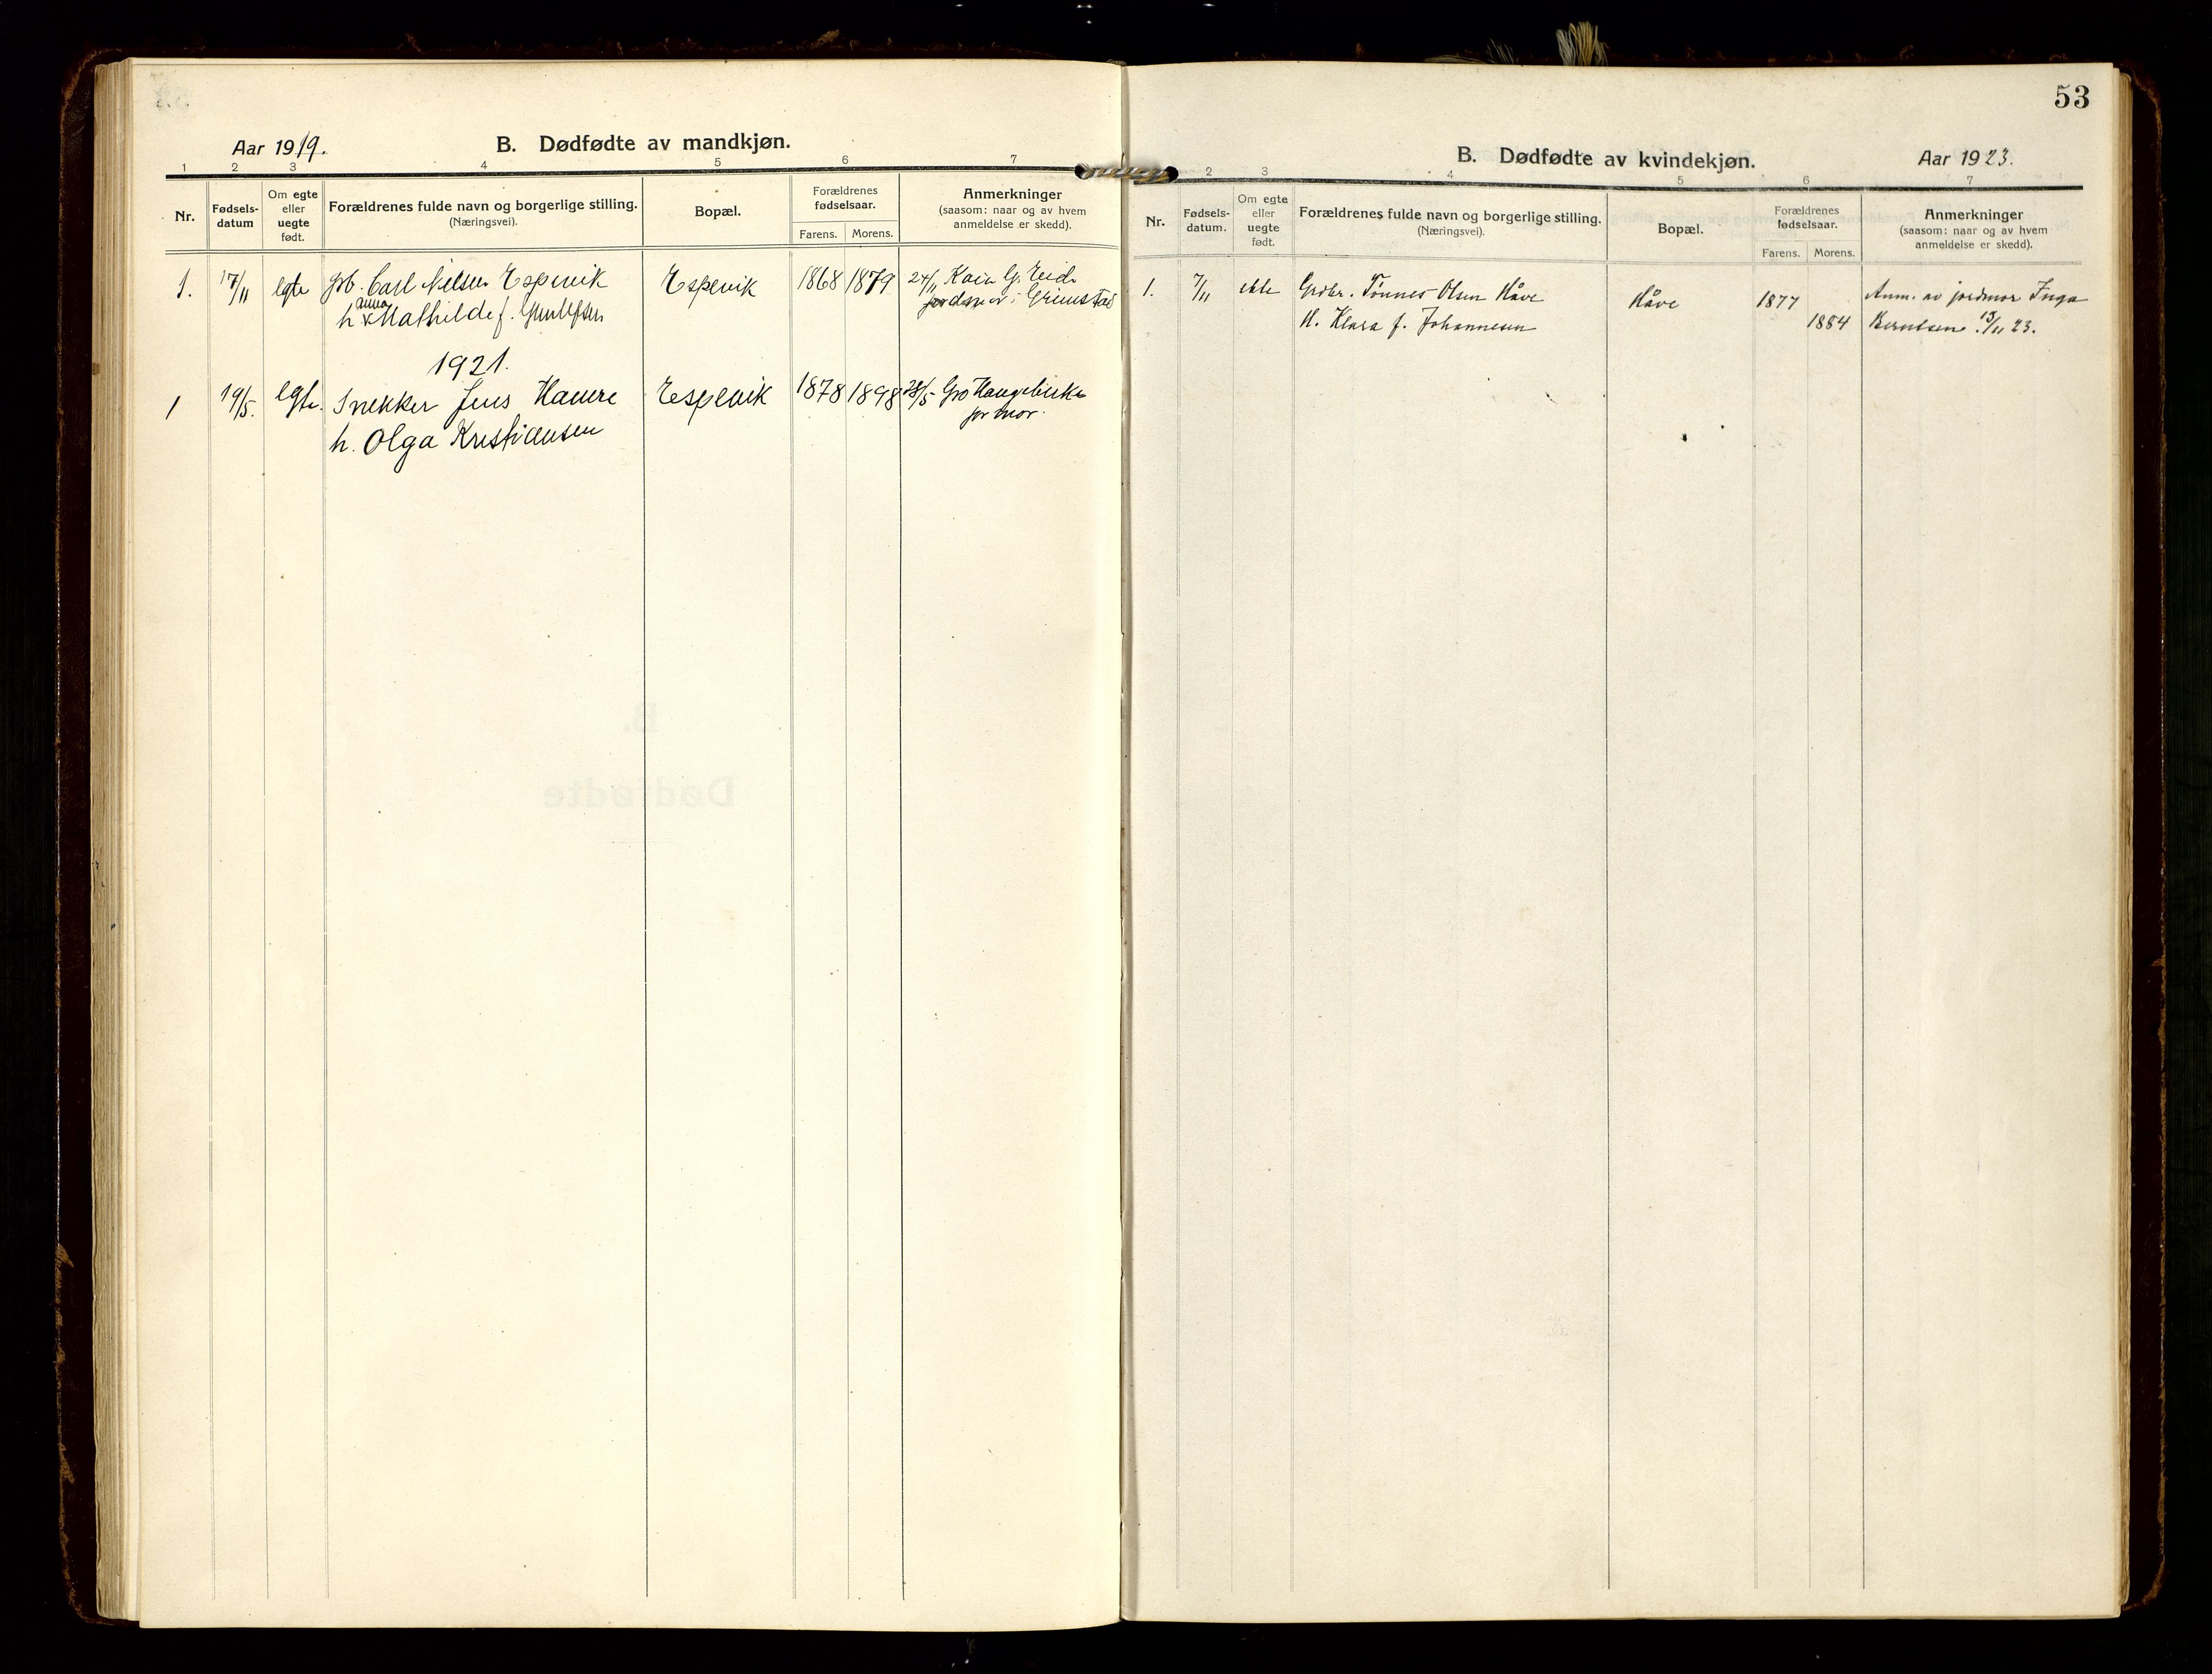 Aar 1919.
B. Dødfødte av mandkjøn.
1 2 3 4 5 6 7
Nr.
Fødsels-
datum
Om egte
eller
uegte
født.
Forældrenes fulde navn og borgerlige stilling.
(Næringsvei).
Bopæl.
Forældrenes
fødselsaar.
Farens. Morens.
Anmerkninger
(saasom: naar og av hvem
anmeldelse er skedd).
1. 17/11 egte Gb. Carl Nielsen Espevik Espevik 1868 1879 24/11 G. Eide
anna
h. Mathilde f. jordmor i Grimstad
1921.
1 19/5. egte. Snekker Jens Hauere Espevik 1878 1898 28/5 Gro
h. Olga Kristiansen jormor.
53
B. Dødfødte av kvindekjøn.
Aar 1923.
2 3 4 5 6 7
Nr.
Fødsels-
datum.
Om egte
eller
uegte
født.
Forældrenes fulde navn og borgerlige stilling.
(Næringsvei).
Bopæl.
Forældrenes
fødselsaar.
Farens. Morens.
Anmerkninger
(saasom: naar og av hvem
anmeldelse er skedd).
1. 7/11 ekte Grdbr. Tønnes Olsen Håve Håve 1877 Anm. av jordmor Inga
H. Klara f. Johannesen 1884 Berntsen 13/11 23.